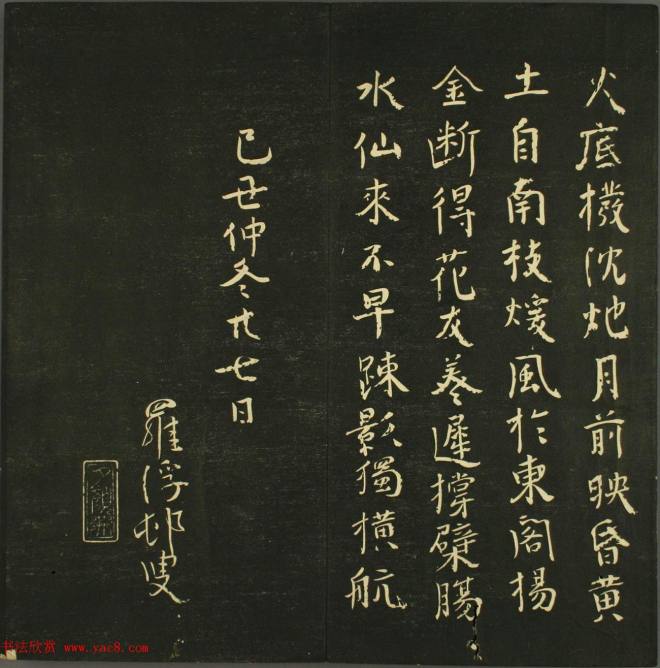 火底檴沈灺月前映昏黄
土自南枝煖風於東閣揚
金斷得花友養遲擰檗腸
水仙來不早踈影獨横航
己丑仲冬廿七日
羅浮邨叟
书法欣赏 www.yac8.com